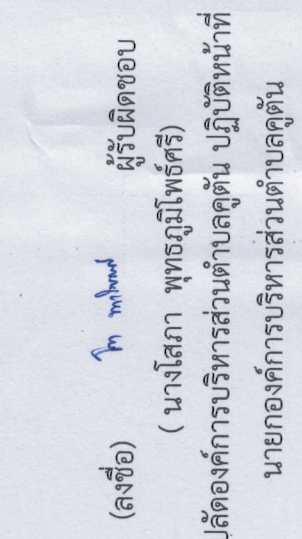 (ลงชื่อ) ผู้รับผิดชอบ
( นางโสภา พุทธภูมิโพธิ์ศรี)
ปลัดองค์การบริหารส่วนตำบลคูตัน ปฏิบัติหน้าที่
นายกองค์การบริหารส่วนตำบลคูตัน